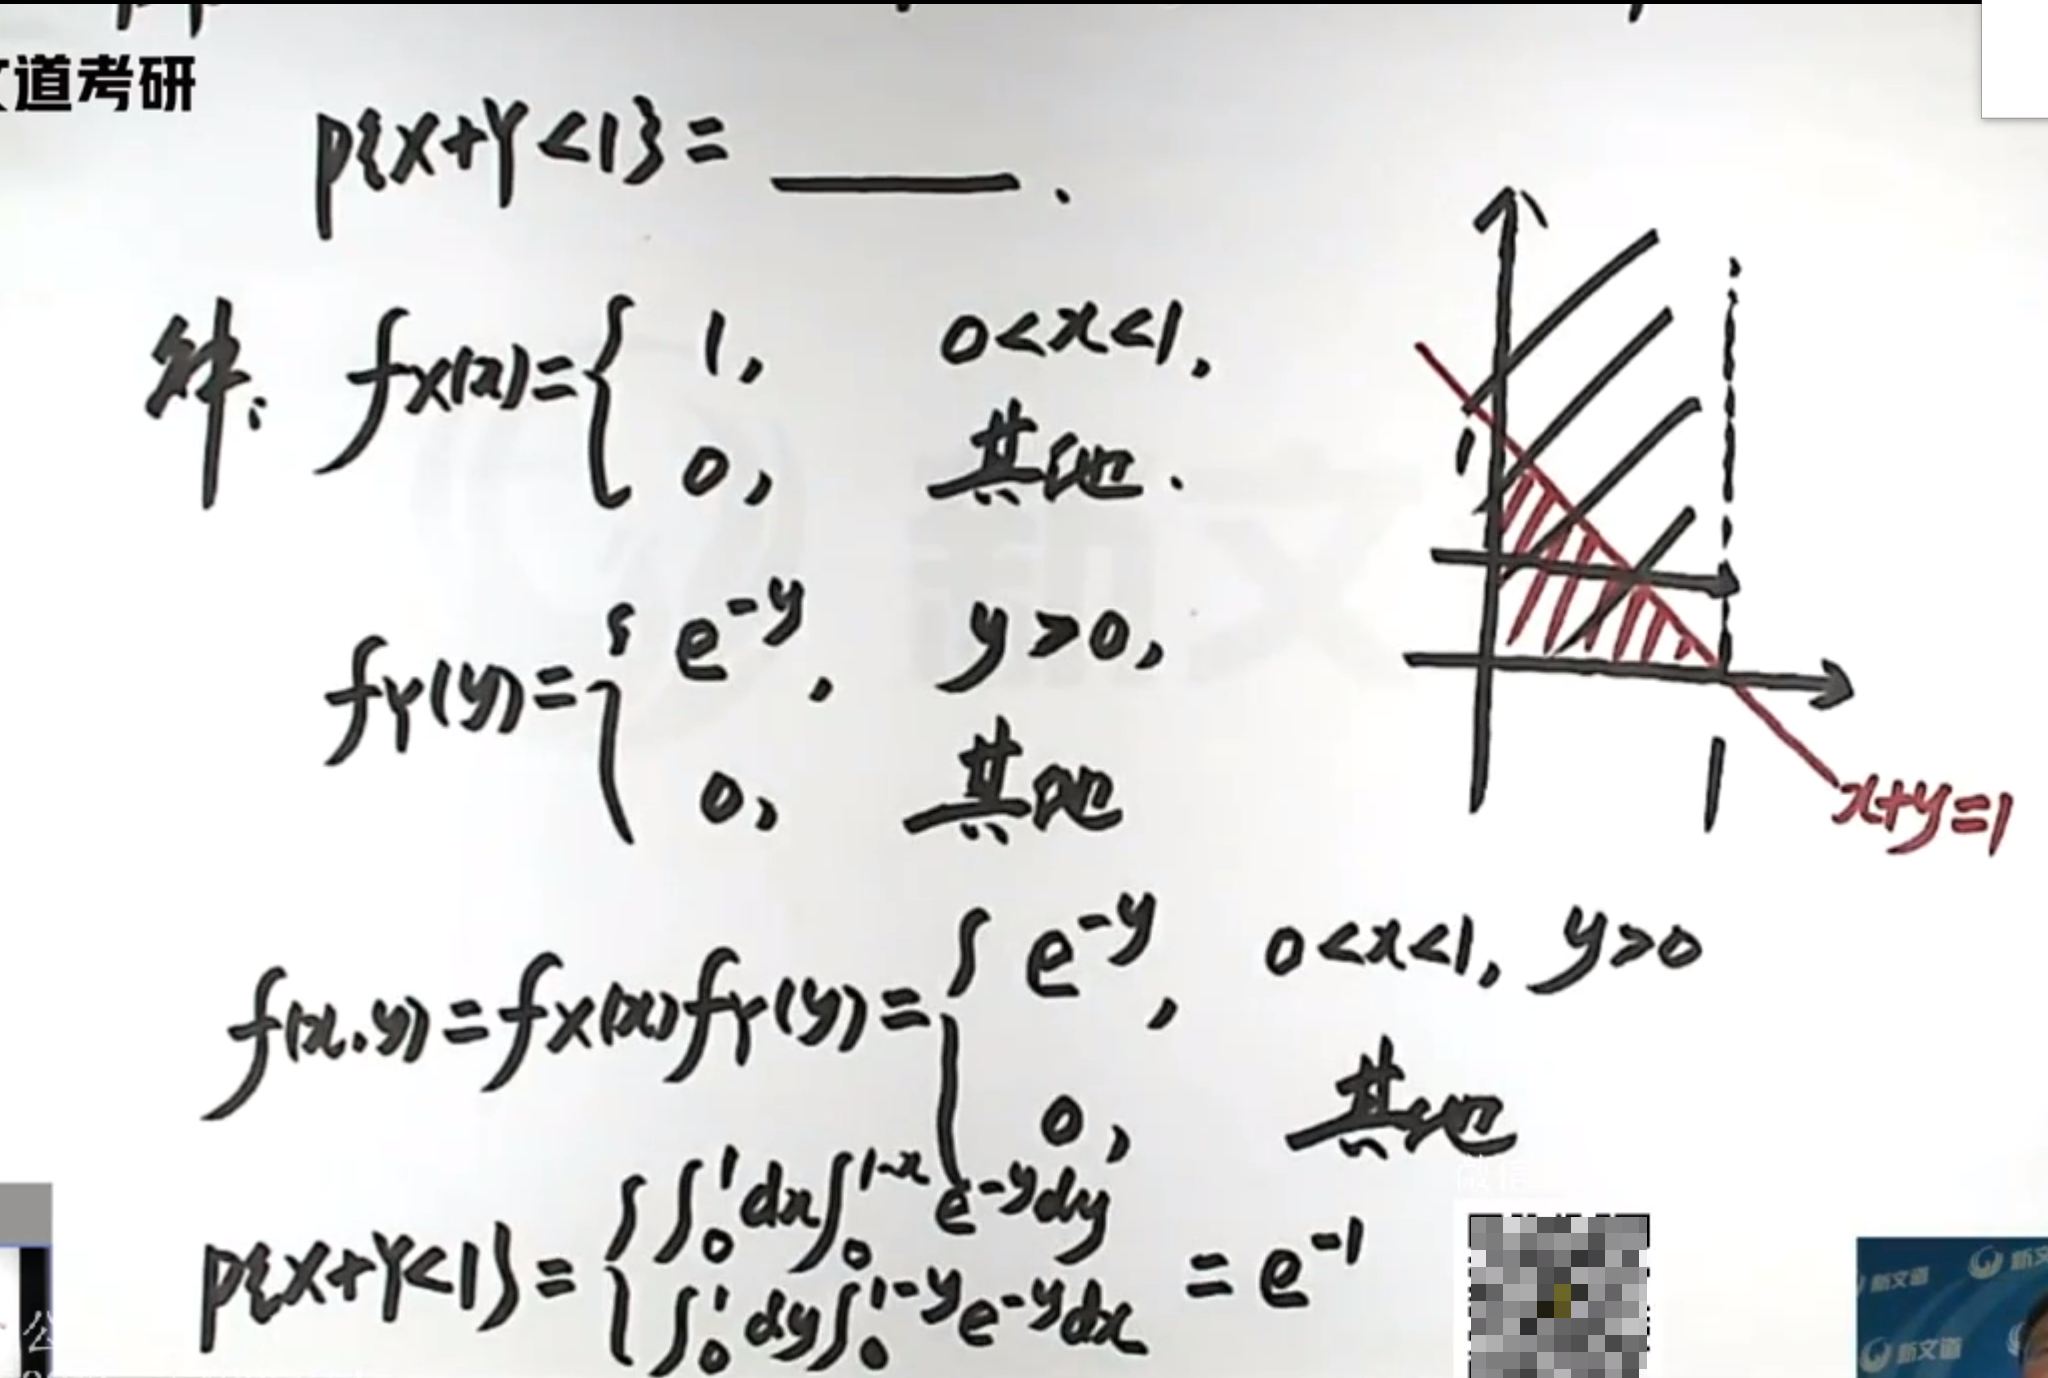 道考研
P{X+Y<1}= ____ .
解: fX(x)={ 1, 0<x<1,
0, 其他.
fY(y)={ e^{-y}, y>0,
0, 其他
1
1
x+y=1
f(x,y)=fX(x)fY(y)={ e^{-y}, 0<x<1, y>0
0, 其他
P{X+Y<1}={ ∫_0^1 dx∫_0^{1-x} e^{-y}dy
∫_0^1 dy∫_0^{1-y} e^{-y}dx = e^{-1}
新文
微信
公
新文道
新文
新文道